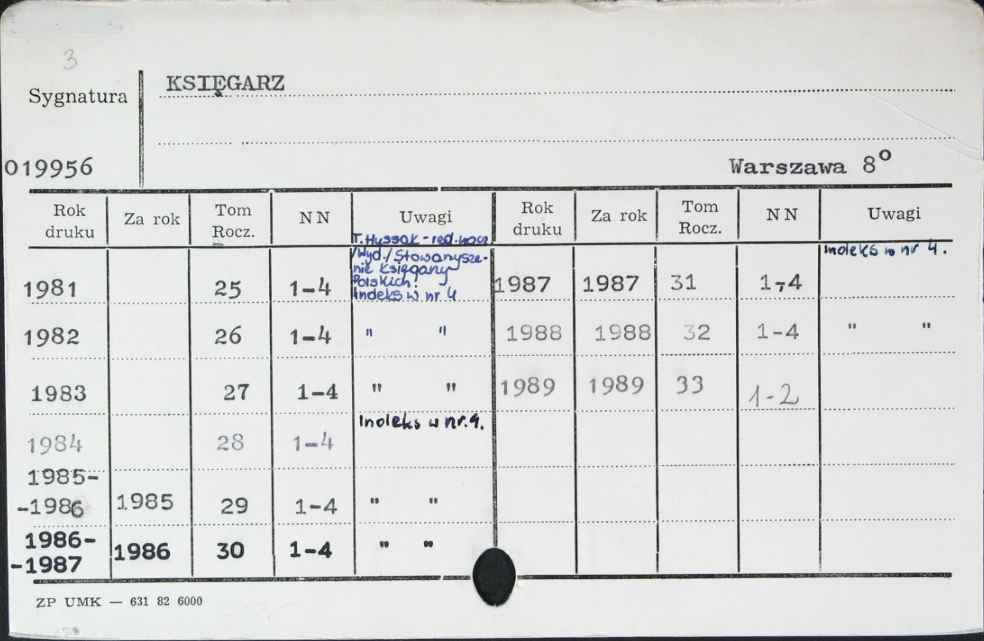 3
Sygnatura KSIĘGARZ
019956 Warszawa 8°
Rok druku Za rok Tom Rocz. NN Uwagi Rok druku Za rok Tom Rocz. NN Uwagi
T. Hussak - red. nacz.
/Wyd./ Stowarzysze-
nie Księgarzy
Polskich.
Indeks w nr 4
1981 25 1-4
1987 1987 31 1-4 Indeks w nr 4.
1982 26 1-4 " "
1988 1988 32 1-4 " "
1983 27 1-4 " "
1989 1989 33 1-2
1984 28 1-4 Indeks w nr. 4.
1985-
-1986 1985 29 1-4 " "
1986-
-1987 1986 30 1-4 " "
ZP UMK — 631 82 6000